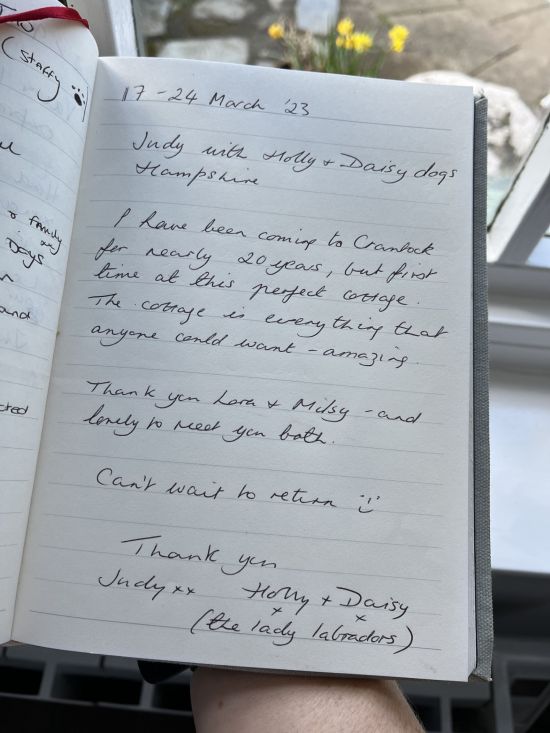 (staffy
& family
Days
and
17 - 24 March '23
Judy with Holly + Daisy dogs
Hampshire
I have been coming to Crantock
for nearly 20 years, but first
time at this perfect cottage.
The cottage is everything that
anyone could want - amazing.
Thank you Lora + Milsy - and
lovely to meet you both.
Can't wait to return :)
Thank you
Judy xx Holly + Daisy
x x
(the lady labradors)